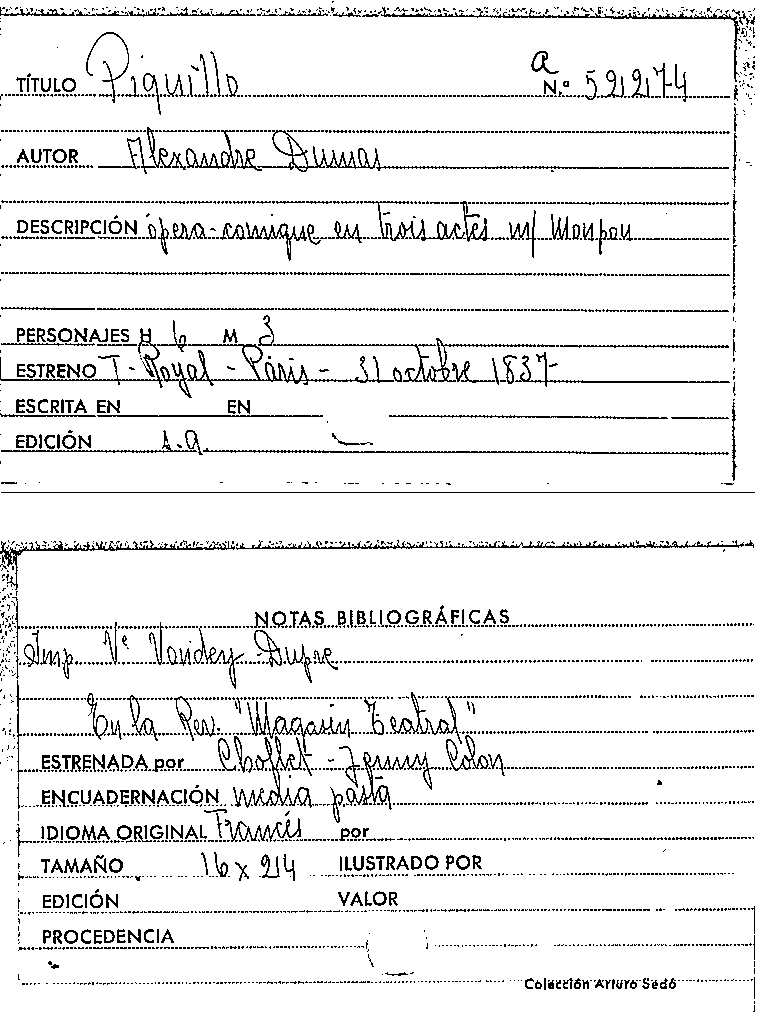 TÍTULO Piquillo a N.º 52274
AUTOR Alexandre Dumas
DESCRIPCIÓN ópera-comique en trois actes m/ Monpou
PERSONAJES H 6 M 3
ESTRENO T-Royal - Paris - 31 octobre 1837-
ESCRITA EN EN
EDICIÓN s.a.
NOTAS BIBLIOGRÁFICAS
Imp. Vᵉ Dupre
En la Rev. "Magasin Teatral"
ESTRENADA por Chollet - Jenny Colon
ENCUADERNACIÓN media pasta
IDIOMA ORIGINAL Francés por
TAMAÑO 16 x 24 ILUSTRADO POR
EDICIÓN VALOR
PROCEDENCIA
Colección Arturo Sedó